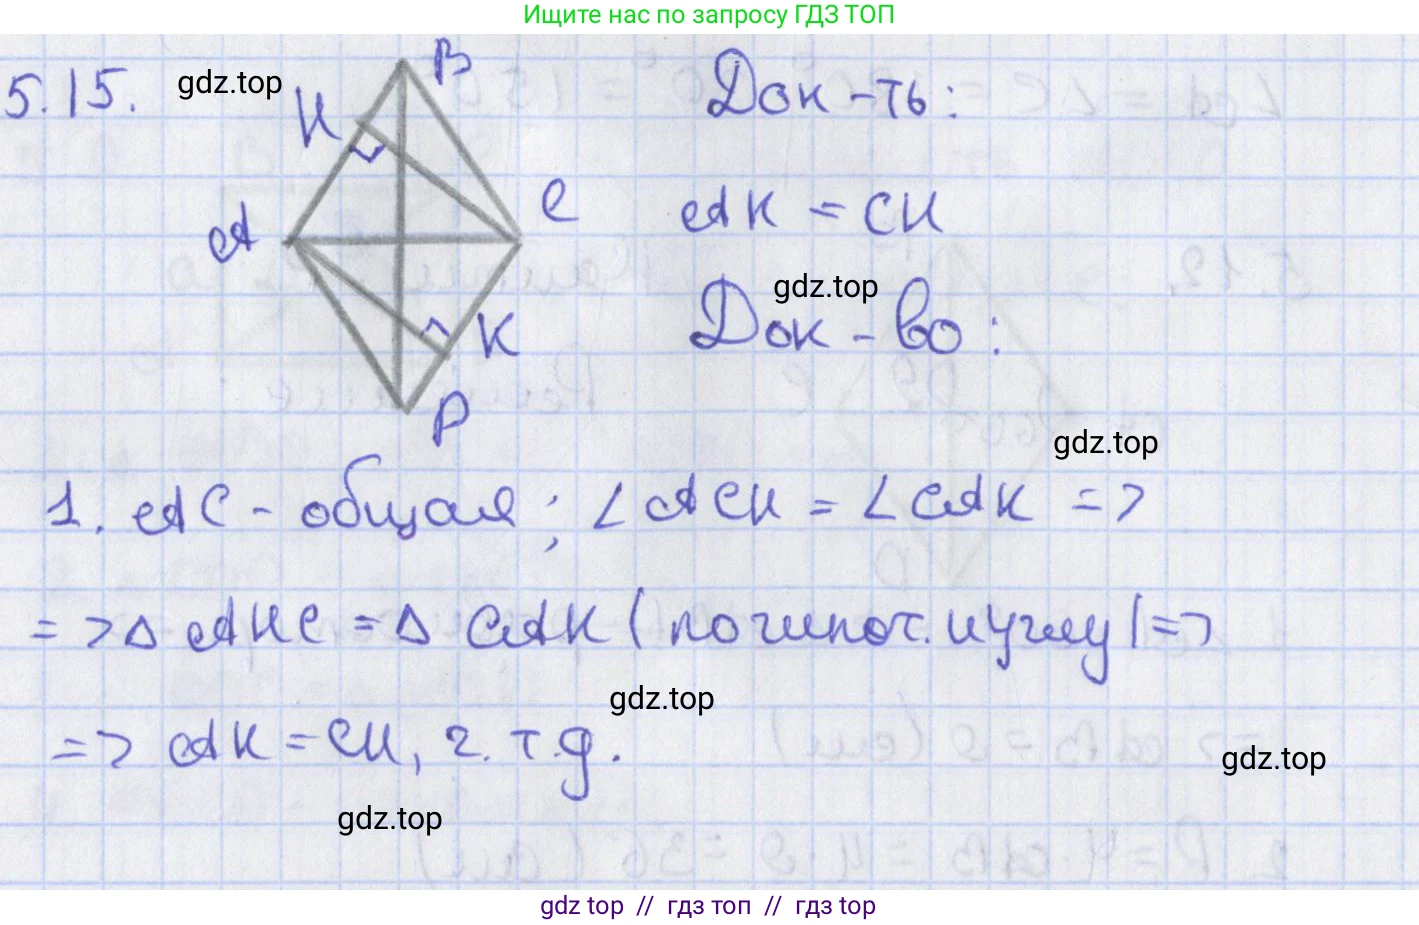 Ищите нас по запросу ГДЗ ТОП
5.15.
gdz.top
B
H
A
C
K
P
Док-ть:
AK = CH
gdz.top
Док-во:
gdz.top
1. AC - общая; ∠ACH = ∠CAK =>
=> △ AHC = △ CAK (по гипот. и углу) =>
gdz.top
=> AK = CH, ч.т.д.
gdz.top
gdz.top
gdz top // гдз топ // гдз top